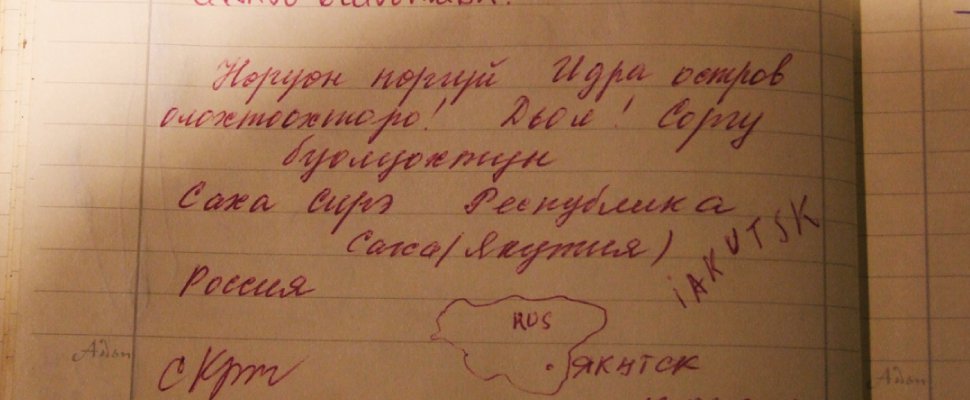 Норуон норгуй Идра остров
олохтоохторо! Дьол! Соргу
буолуохтун
Саха сирэ Республика
Саха (Якутия)
IAKUTSK
Россия
RUS
ЯКУТСК
Adon
Adon